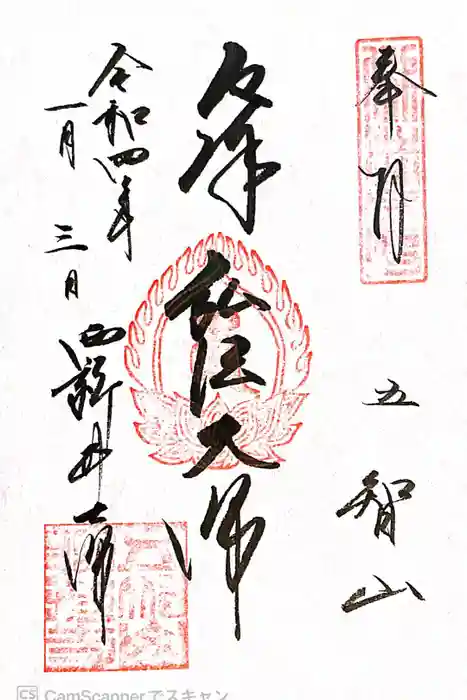 奉拝
五智山
厄除
弘法大師
令和四年
一月三日
西新井大師
CS CamScannerでスキャン